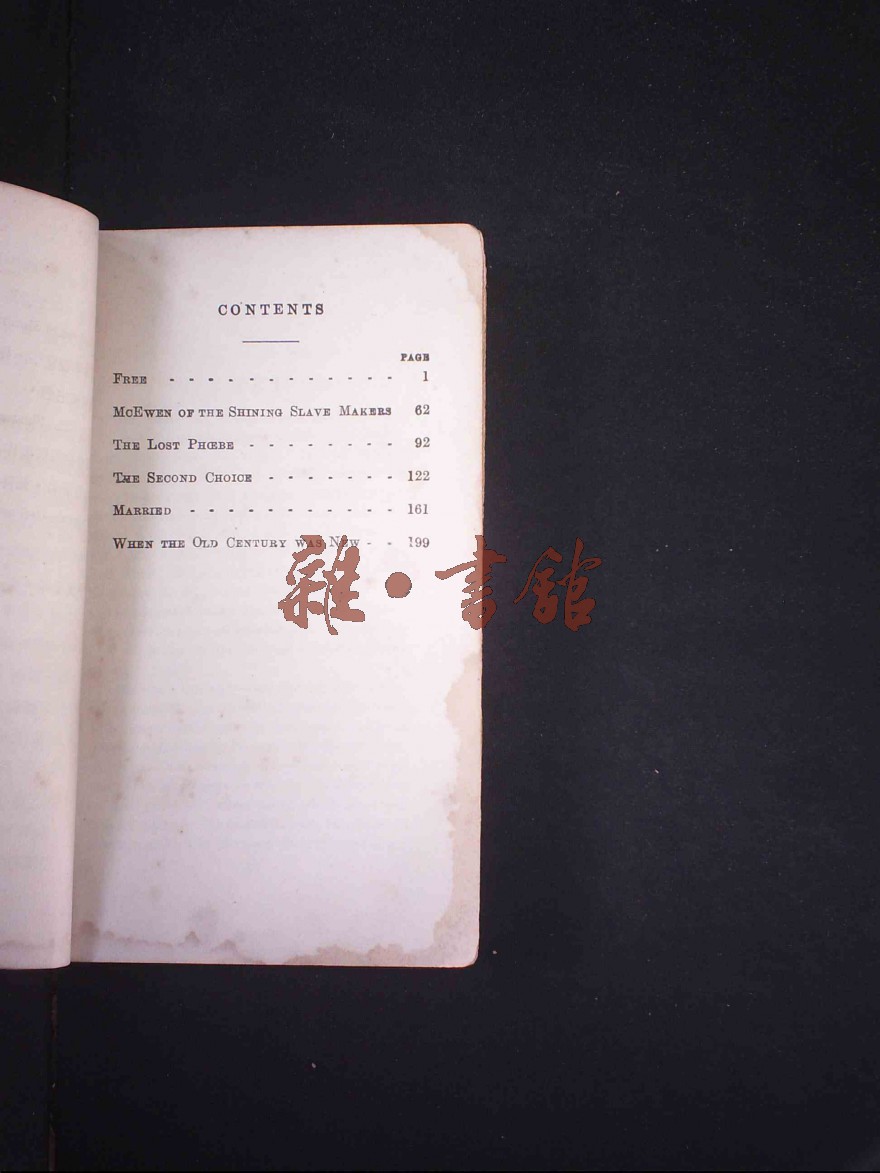 CONTENTS
PAGE
FREE - - - - - - - - - - - - 1
MCEWEN OF THE SHINING SLAVE MAKERS 62
THE LOST PHŒBE - - - - - - - - 92
THE SECOND CHOICE - - - - - - - 122
MARRIED - - - - - - - - - - - 161
WHEN THE OLD CENTURY WAS NEW - - 199
雜·書館